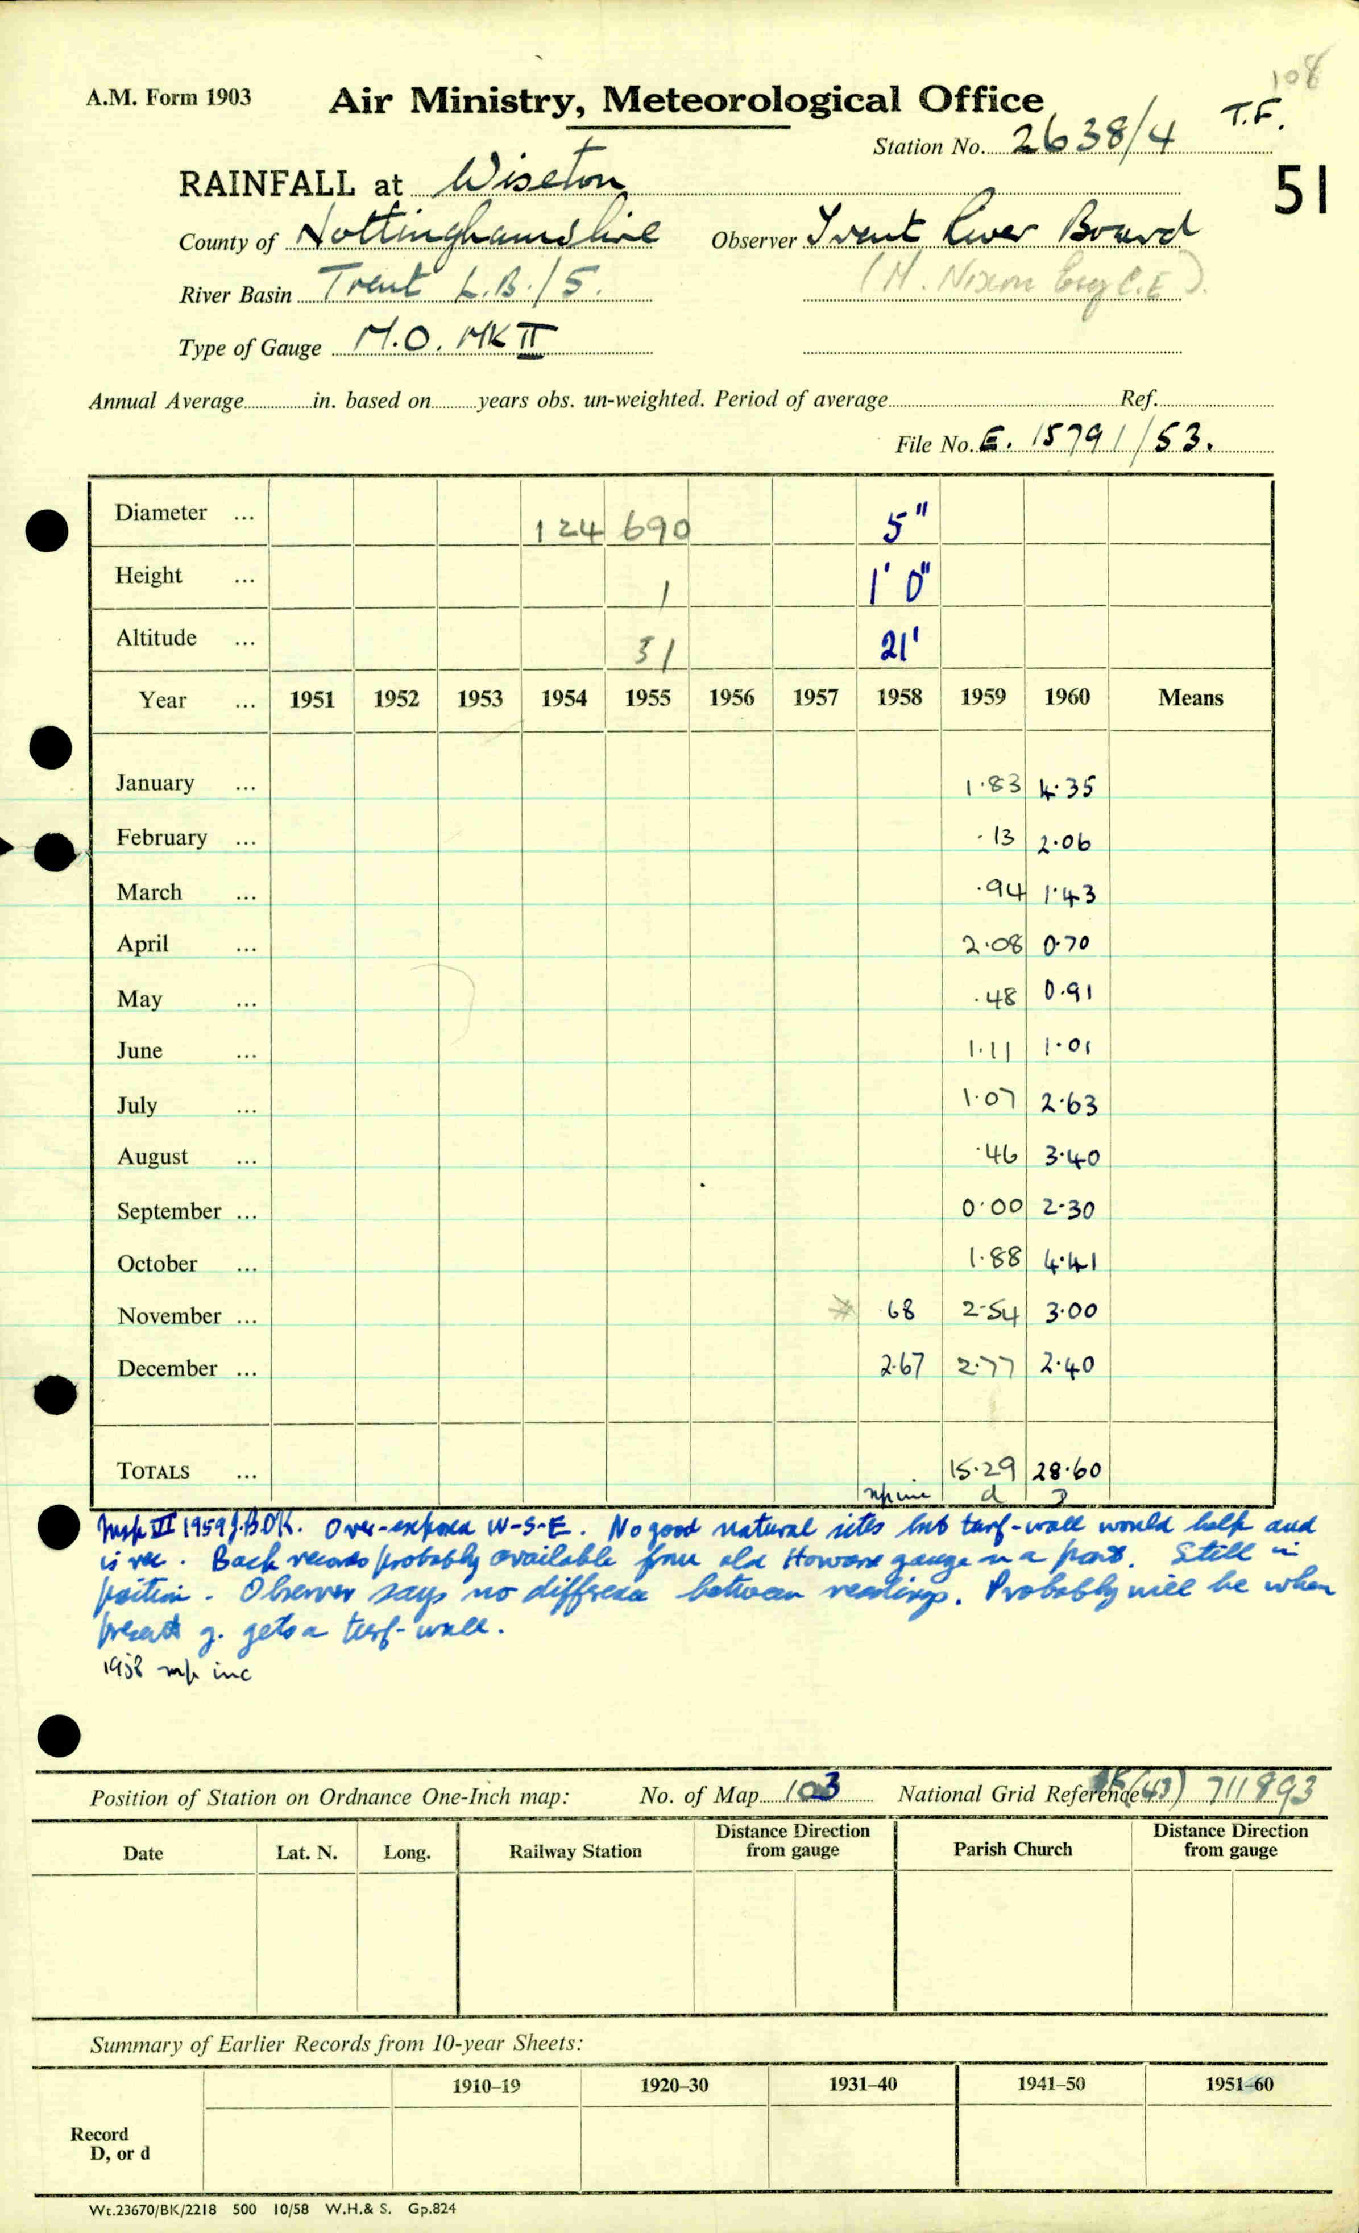 108
A.M. Form 1903 Air Ministry, Meteorological Office T.F.
Station No. 2638/4
RAINFALL at Wiseton 51
County of Nottinghamshire Observer Trent River Board
River Basin Trent L.B./5. (M. Nixon Esq C.E).
Type of Gauge M.O. MK II
Annual Average in. based on years obs. un-weighted. Period of average Ref.
File No. E. 15791/53.
Diameter ... 124 690 5"
Height ... 1 1' 0"
Altitude ... 31 21'
Year ... 1951 1952 1953 1954 1955 1956 1957 1958 1959 1960 Means
January ... 1·83 4·35
February ... ·13 2·06
March ... ·94 1·43
April ... 2·08 0·70
May ... ·48 0·91
June ... 1·11 1·01
July ... 1·07 2·63
August ... ·46 3·40
September ... 0·00 2·30
October ... 1·88 4·41
November ... 68 2·54 3·00
December ... 2·67 2·77 2·40
TOTALS ... 15·29 28·60
mp inc d
Insp VII 1959 J.B.O.K. Over-exposed W-S-E. No good natural sites but turf-wall would help and
is rec. Back records probably available from old Howard gauge in a post. Still in
position. Observer says no difference between readings. Probably will be when
present g. gets a turf-wall.
1958 mp inc
Position of Station on Ordnance One-Inch map: No. of Map 103 National Grid Reference (43) 711893
Date Lat. N. Long. Railway Station Distance Direction from gauge Parish Church Distance Direction from gauge
Summary of Earlier Records from 10-year Sheets:
1910–19 1920–30 1931–40 1941–50 1951–60
Record
D, or d
Wt.23670/BK/2218 500 10/58 W.H.& S. Gp.824